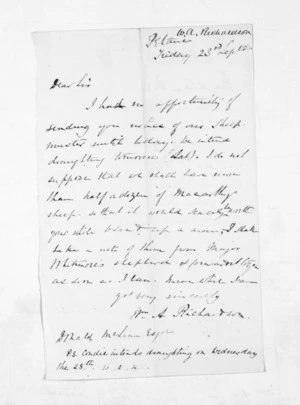 W.A. Richardson
Pt Cane
Friday 23rd Septbr
Dear Sir
I had no opportunity of
sending you notice of our Sheep
muster until today. We intend
draughting tomorrow (Sat). I do not
suppose that we shall have more
than half a dozen of Macarthy
sheep. so that it would scarcely be worth
your while a man. I shall
take a note of them from Major
Whitmore's shepherd & forward
as soon as I can. Mean while I am
yrs very sincerely
Wm A Richardson.
Donald McLean Esqre
P.S. Condie intends draughting on Wednesday
the 28th W.A.R.